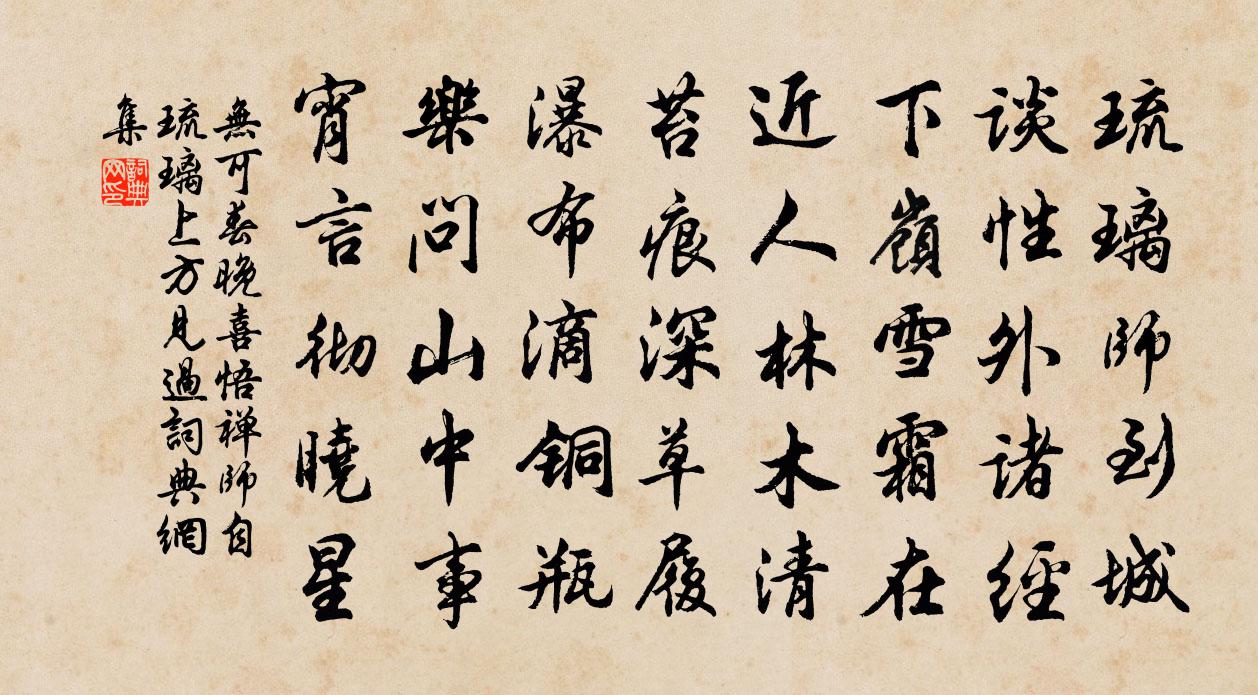 琉璃师到城
谈性外诸经
下嶺雪霜在
近人林木清
苔痕深草履
瀑布滴铜瓶
樂问山中事
宵言彻曉星
無可春晚喜悟禅师自
琉璃上方見過詞典網
集
詞典網印